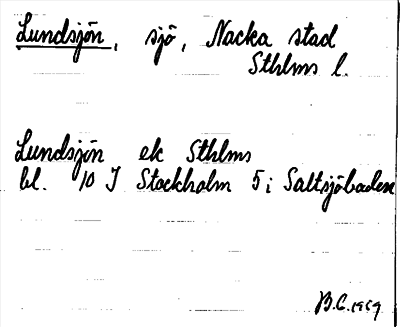 Lundsjön, sjö, Nacka stad
Sthlms l.
Lundsjön ek Sthlms
bl. 10 J Stockholm 5 i Saltsjöbaden
B.C. 1969